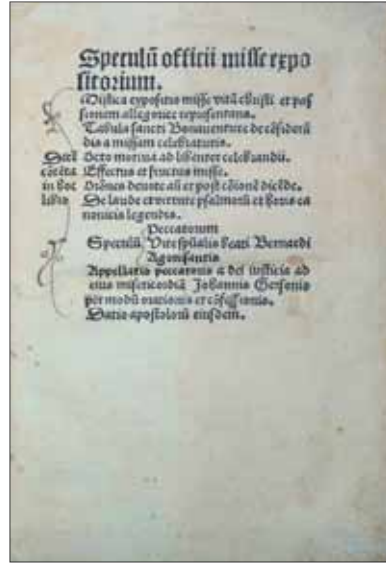 Speculū officii misse expo
sitorium.
Mistica expositio misse vitā christi et pas
sionem allegorice representans.
Tabula sancti Bonauenture de cōsiderā
dis a missam celebraturis.
Hec cōtēta in hoc libro
Octo motiua ad libenter celebrandū.
Effectus et fructus misse.
Orōnes deuote añ et post cōionē dicēde.
De laude et virtute psalmorū et horis ca
nonicis legendis.
Peccatorum
Speculū Vite spūalis beati Bernardi
Agonisantis
Appellatio peccatoris a dei iusticia ad
eius misericordiā Johannis Gersonis
per modū orationis et cōfessionis.
apostolorū eiusdem.